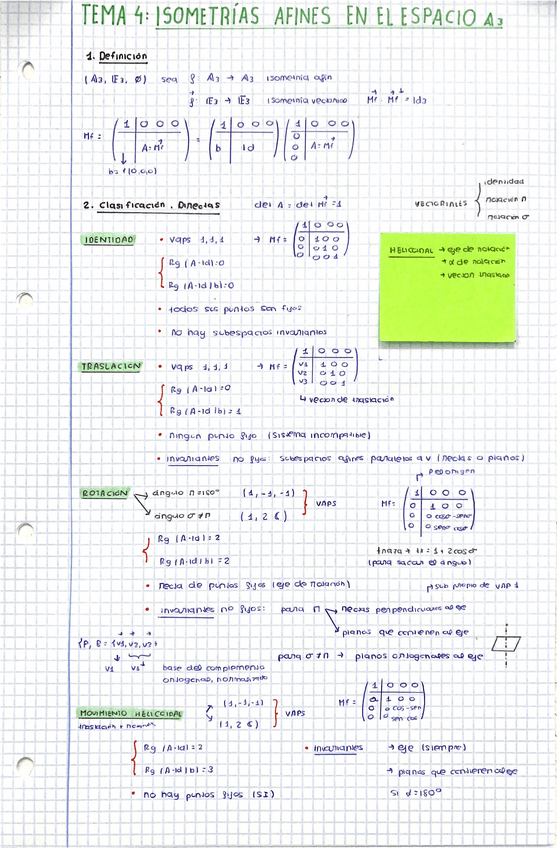 TEMA 4: ISOMETRÍAS AFINES EN EL ESPACIO A3
1. Definición
(A3, E3, Ø) sea f: A3 → A3 isometría afín
f: E3 → E3 isometría vectorial Mf · Mf = Id3
Mf = ( 1 | 0 0 0 ; b | A = Mf ) = ( 1 | 0 0 0 ; b | Id ) ( 1 | 0 0 0 ; 0 0 0 | A = Mf )
b = f(0,0,0)
2. Clasificación. Directas det A = det Mf = 1
VECTORIALES { identidad
rotación π
rotación σ
IDENTIDAD • vaps 1,1,1 → Mf = ( 1 | 0 0 0 ; 0 | 1 0 0 ; 0 | 0 1 0 ; 0 | 0 0 1 )
Rg (A-Id) = 0
Rg (A-Id|b) = 0
• todos sus puntos son fijos
• no hay subespacios invariantes
HELICOIDAL → eje de rotación
→ α de rotación
→ vector traslación
TRASLACIÓN • vaps 1,1,1 → Mf = ( 1 | 0 0 0 ; v1 | 1 0 0 ; v2 | 0 1 0 ; v3 | 0 0 1 )
↳ vector de traslación
Rg (A-Id) = 0
Rg (A-Id|b) = 1
• ningún punto fijo (Sistema incompatible)
• invariantes no fijos: subespacios afines paralelos a v (rectas o planos)
ROTACIÓN → ángulo π = 180º (1, -1, -1)
→ ángulo σ ≠ π (1, 2 ₵)
} VAPS
Mf = ( 1 | 0 0 0 ; 0 | 1 0 0 ; 0 | 0 cosσ -senσ ; 0 | 0 senσ cosσ )
Rg (A-Id) = 2
Rg (A-Id|b) = 2
traza → tr = 1 + 2cosσ
(para sacar el ángulo)
• recta de puntos fijos (eje de rotación)
sub propio de VAP 1
• invariantes no fijos: para π → rectas perpendiculares al eje
→ planos que contienen al eje
para σ ≠ π → planos ortogonales al eje
{P, B = {v1, v2, v3}}
v1 v1⊥ base del complemento
ortogonal, normalizado
MOVIMIENTO HELICOIDAL (1, -1, -1)
(1, 2 ₵)
} VAPS
Mf = ( 1 | 0 0 0 ; a | 1 0 0 ; 0 | 0 cos -sen ; 0 | 0 sen cos )
traslación + rotación
Rg (A-Id) = 2 • invariantes → eje (siempre)
Rg (A-Id|b) = 3 → planos que contienen al eje
• no hay puntos fijos (SI) si α = 180º